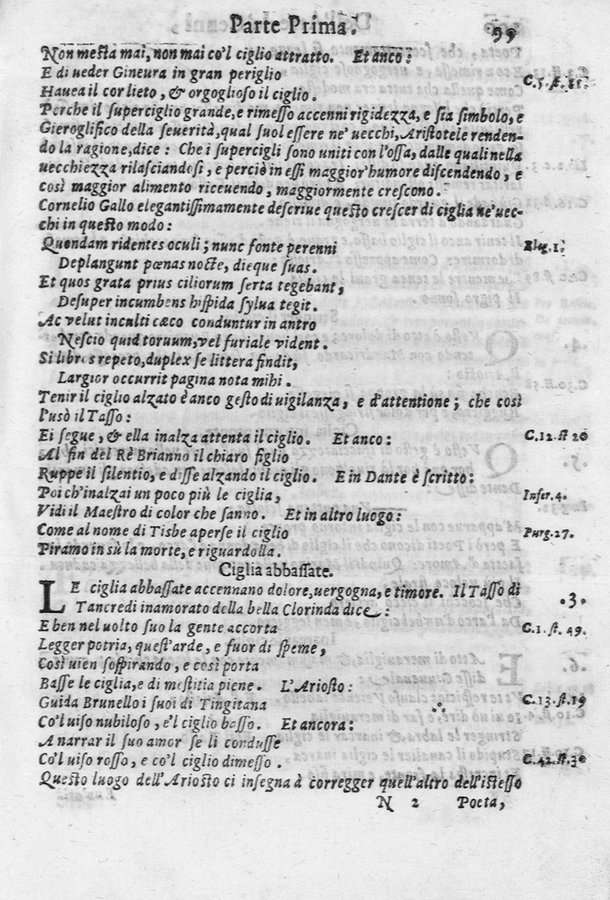 Parte Prima. 99
Non mesta mai, non mai co'l ciglio attratto. Et anco:
E di ueder Gineura in gran periglio
Hauea il cor lieto, & orgoglioso il ciglio. C.5.st.
Perche il superciglio grande, e rimesso accenni rigidezza, e sia simbolo, e
Gieroglifico della seuerità, qual suol essere ne' uecchi, Aristotele renden-
do la ragione, dice: Che i supercigli sono uniti con l'ossa, dalle quali nella
uecchiezza rilasciandosi, e perciò in essi maggior'humore discendendo, e
così maggior alimento riceuendo, maggiormente crescono.
Cornelio Gallo elegantissimamente descriue questo crescer di ciglia ne'uec-
chi in questo modo:
Quondam ridentes oculi; nunc fonte perenni Eleg.1.
Deplangunt pœnas nocte, dieque suas.
Et quos grata prius ciliorum serta tegebant,
Desuper incumbens hispida sylua tegit.
Ac velut inculti cæco conduntur in antro
Nescio quid toruum, vel furiale vident.
Si libros repeto, duplex se littera findit,
Largior occurrit pagina nota mihi.
Tenir il ciglio alzato è anco gesto di uigilanza, e d'attentione; che così
l'usò il Tasso:
Ei segue, & ella inalza attenta il ciglio. Et anco: C.12.st 20
Al fin del Rè Brianno il chiaro figlio
Ruppe il silentio, e disse alzando il ciglio. E in Dante è scritto:
Poi ch'inalzai un poco più le ciglia, Infer.4.
Vidi il Maestro di color che sanno. Et in altro luogo:
Come al nome di Tisbe aperse il ciglio Purg.27.
Piramo in sù la morte, e riguardolla.
Ciglia abbassate.
LE ciglia abbassate accennano dolore, uergogna, e timore. Il Tasso di .3.
Tancredi inamorato della bella Clorinda dice:
E ben nel uolto suo la gente accorta C.1.st.49.
Legger potria, quest'arde, e fuor di speme,
Così uien sospirando, e così porta
Basse le ciglia, e di mestitia piene. L'Ariosto:
Guida Brunello i suoi di Tingitana C.13.st.19
Co'l uiso nubiloso, e'l ciglio basso. Et ancora:
A narrar il suo amor se li condusse
Co'l uiso rosso, e co'l ciglio dimesso. C.42.st.30
Questo luogo dell'Ariosto ci insegna à corregger quell'altro dell'istesso
N 2 Poeta,